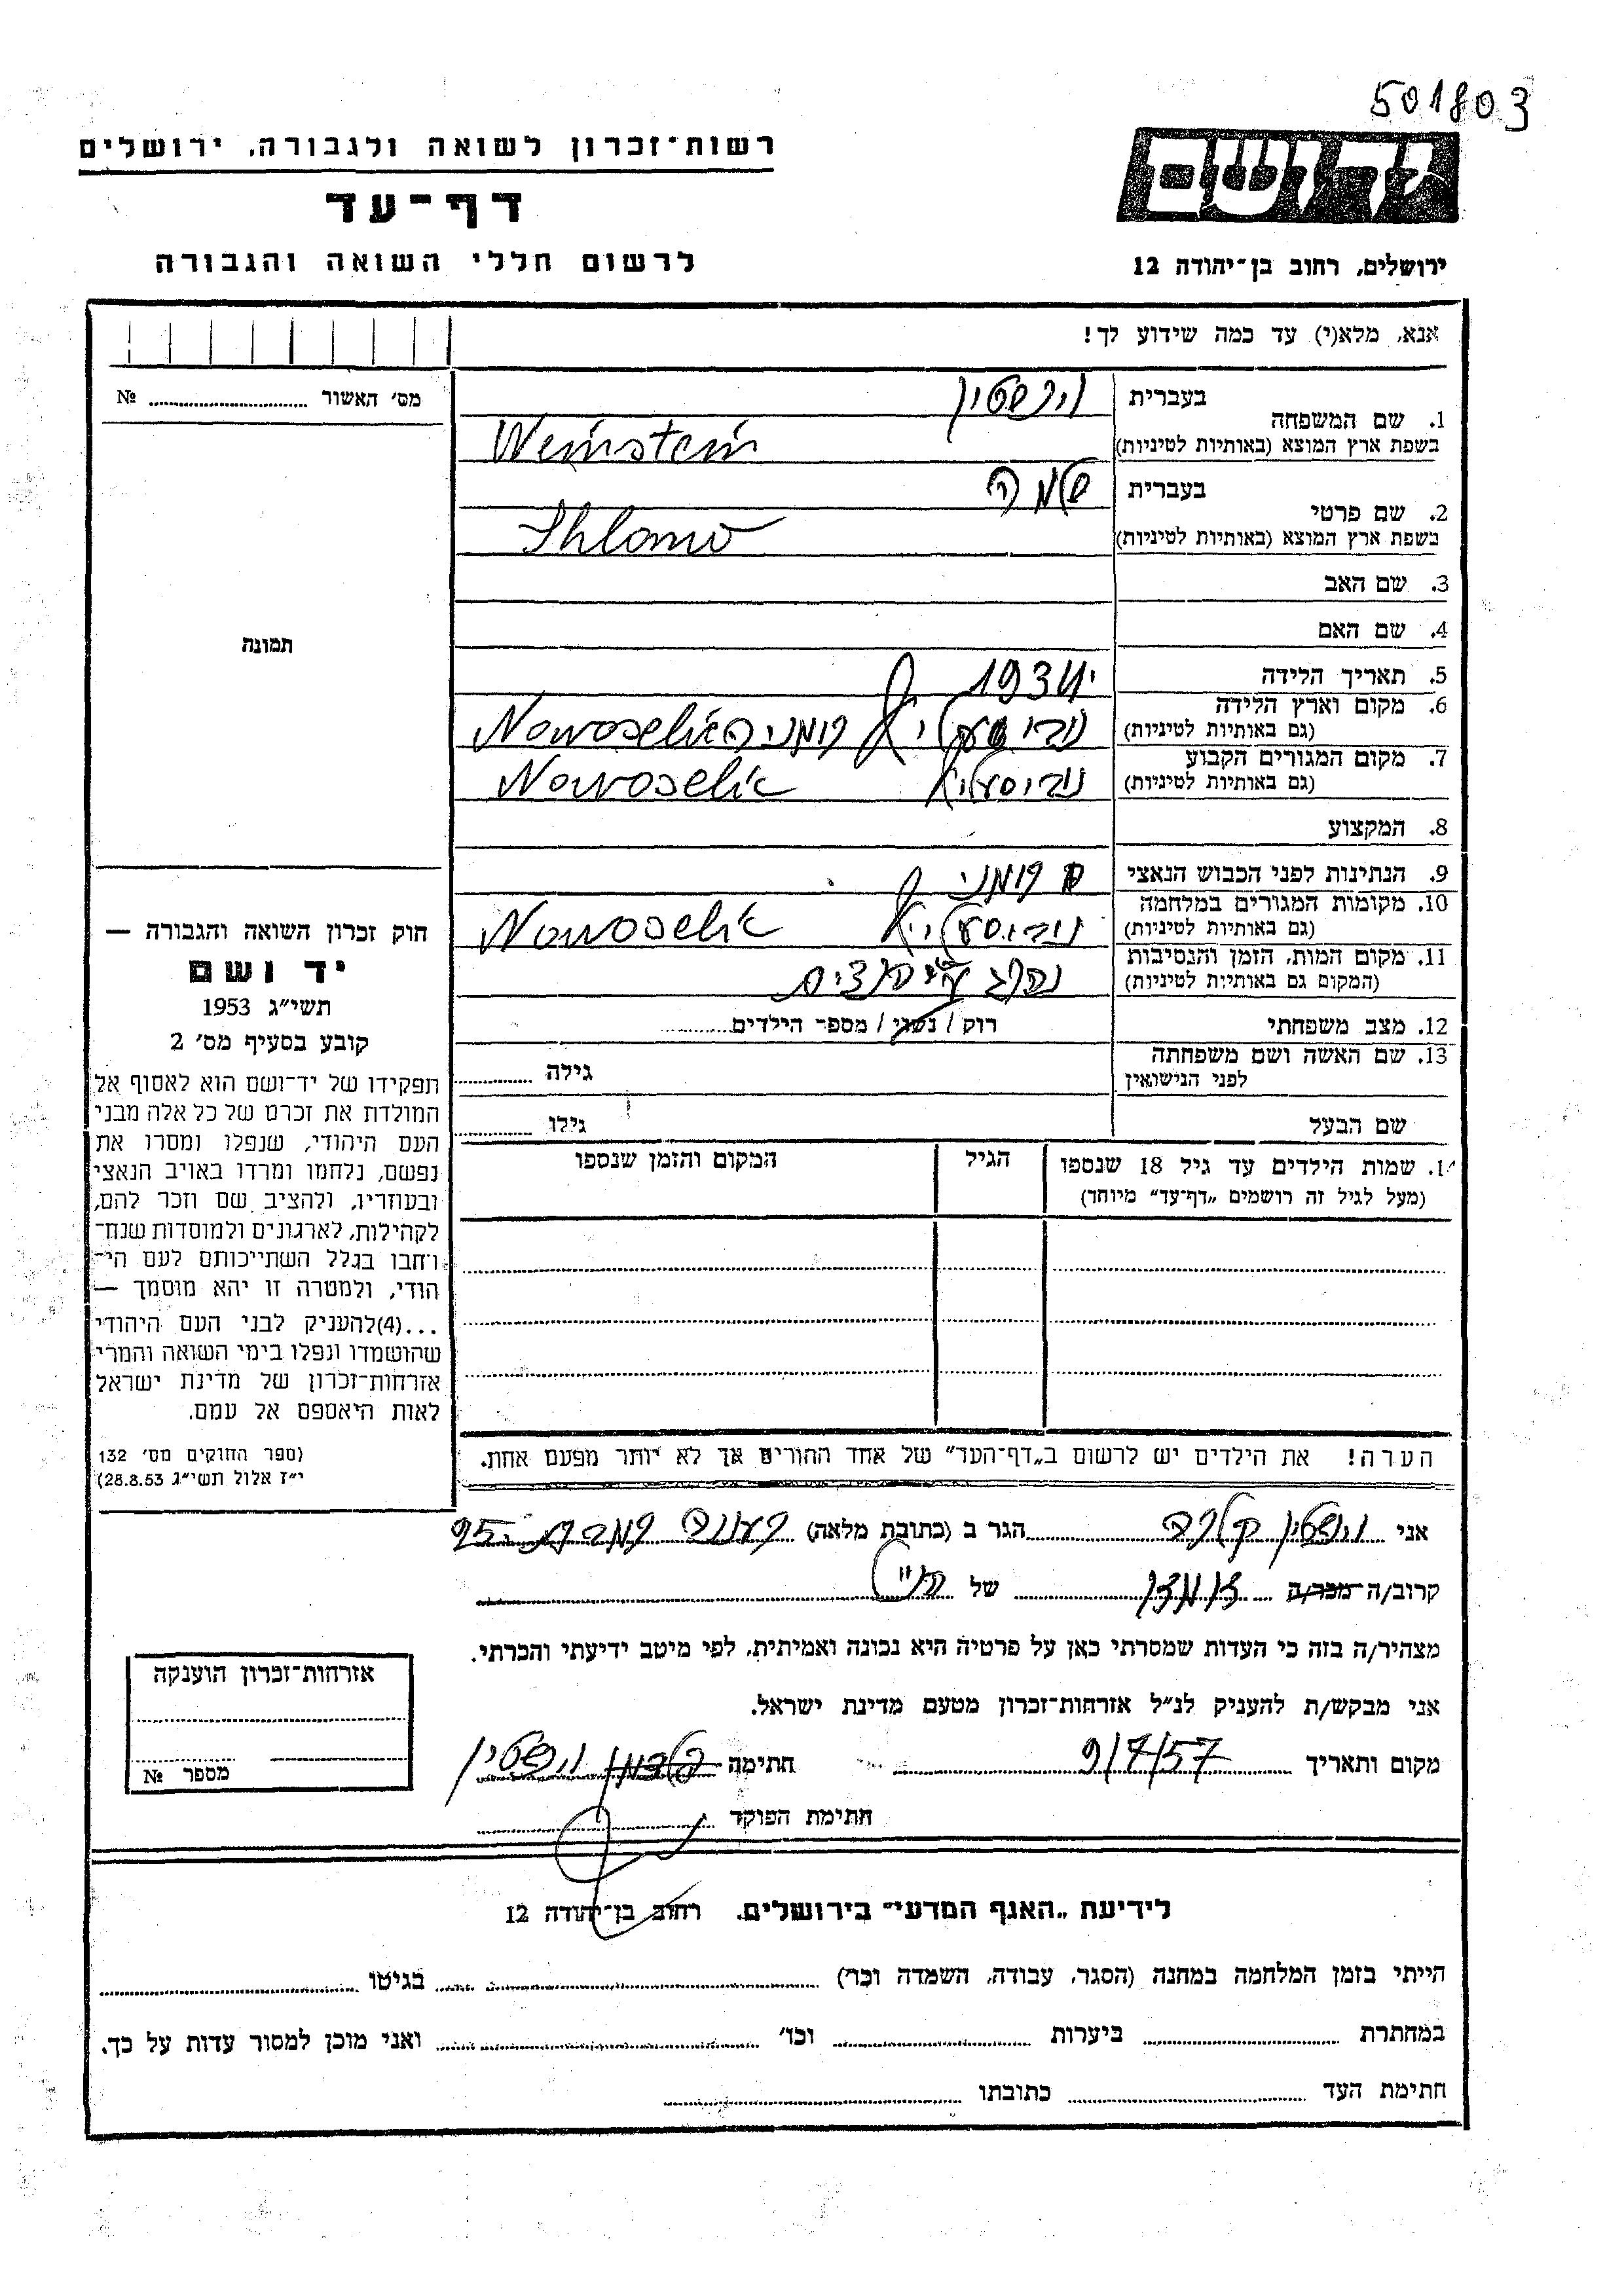 501803
רשות־זכרון לשואה ולגבורה, ירושלים
דף־עד
לרשום חללי השואה והגבורה
יד ושם
ירושלים, רחוב בן־יהודה 12
אנא, מלא(י) עד כמה שידוע לך!
מס׳ האשור № 
1. שם המשפחה
בעברית
וינשטין
בשפת ארץ המוצא (באותיות לטיניות)
Weinstein
2. שם פרטי
בעברית
שלמה
בשפת ארץ המוצא (באותיות לטיניות)
Shlomo
3. שם האב
4. שם האם
5. תאריך הלידה
1934
6. מקום וארץ הלידה
(גם באותיות לטיניות)
רומניה Nowoselic
7. מקום המגורים הקבוע
(גם באותיות לטיניות)
Nowoselic
8. המקצוע
9. הנתינות לפני הכבוש הנאצי
רומני
10. מקומות המגורים במלחמה
(גם באותיות לטיניות)
Nowoselic
11. מקום המות, הזמן והנסיבות
(המקום גם באותיות לטיניות)
נהרג
12. מצב משפחתי
רוק / נשוי / מספר הילדים
13. שם האשה ושם משפחתה
לפני הנישואין
גילה
שם הבעל
גילו
תמונה
חוק זכרון השואה והגבורה —
יד ושם
תשי״ג 1953
קובע בסעיף מס׳ 2
תפקידו של יד־ושם הוא לאסוף אל
המולדת את זכרם של כל אלה מבני
העם היהודי, שנפלו ומסרו את
נפשם, נלחמו ומרדו באויב הנאצי
ובעוזריו, ולהציב שם וזכר להם,
לקהילות, לארגונים ולמוסדות שנח־
רחבו בגלל השתייכותם לעם הי־
הודי, ולמטרה זו יהא מוסמך —
...(4)להעניק לבני העם היהודי
שהושמדו ונפלו בימי השואה והמרי
אזרחות־זכרון של מדינת ישראל
לאות היאספם אל עמם.
(ספר החוקים מס׳ 132
י״ז אלול תשי״ג 28.8.53)
1. שמות הילדים עד גיל 18 שנספו
(מעל לגיל זה רושמים „דף־עד״ מיוחד)
הגיל
המקום והזמן שנספו
הערה! את הילדים יש לרשום ב„דף־העד״ של אחד ההורים אך לא יותר מפעם אחת.
אני וינשטין הגר ב (כתובת מלאה) 95
קרוב/ה מכר/ה של
מצהיר/ה בזה כי העדות שמסרתי כאן על פרטיה היא נכונה ואמיתית, לפי מיטב ידיעתי והכרתי.
אני מבקש/ת להעניק לנ״ל אזרחות־זכרון מטעם מדינת ישראל.
מקום ותאריך 9/7/57 חתימה וינשטין
חתימת הפוקד
אזרחות־זכרון הוענקה
מספר №
לידיעת „האגף המדעי״ בירושלים, רחוב בן־יהודה 12
הייתי בזמן המלחמה במחנה (הסגר, עבודה, השמדה וכד׳) בגיטו
במחתרת ביערות וכד׳ ואני מוכן למסור עדות על כך.
חתימת העד כתובתו